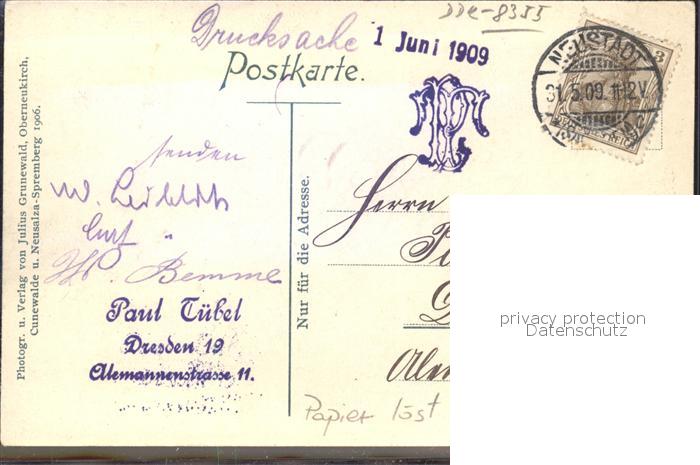 DDE-8355
Drucksache
1 Juni 1909
Postkarte.
NEUSTADT
31.5.09. 11-12V.
3
senden
W.
W. Bemme
Paul Tübel
Dresden 19
Alemannenstrasse 11.
Photogr. u. Verlag von Julius Grunewald, Oberneukirch,
Cunewalde u. Neusalza-Spremberg 1906.
Nur für die Adresse.
Herrn
privacy protection
Datenschutz
Papier löst